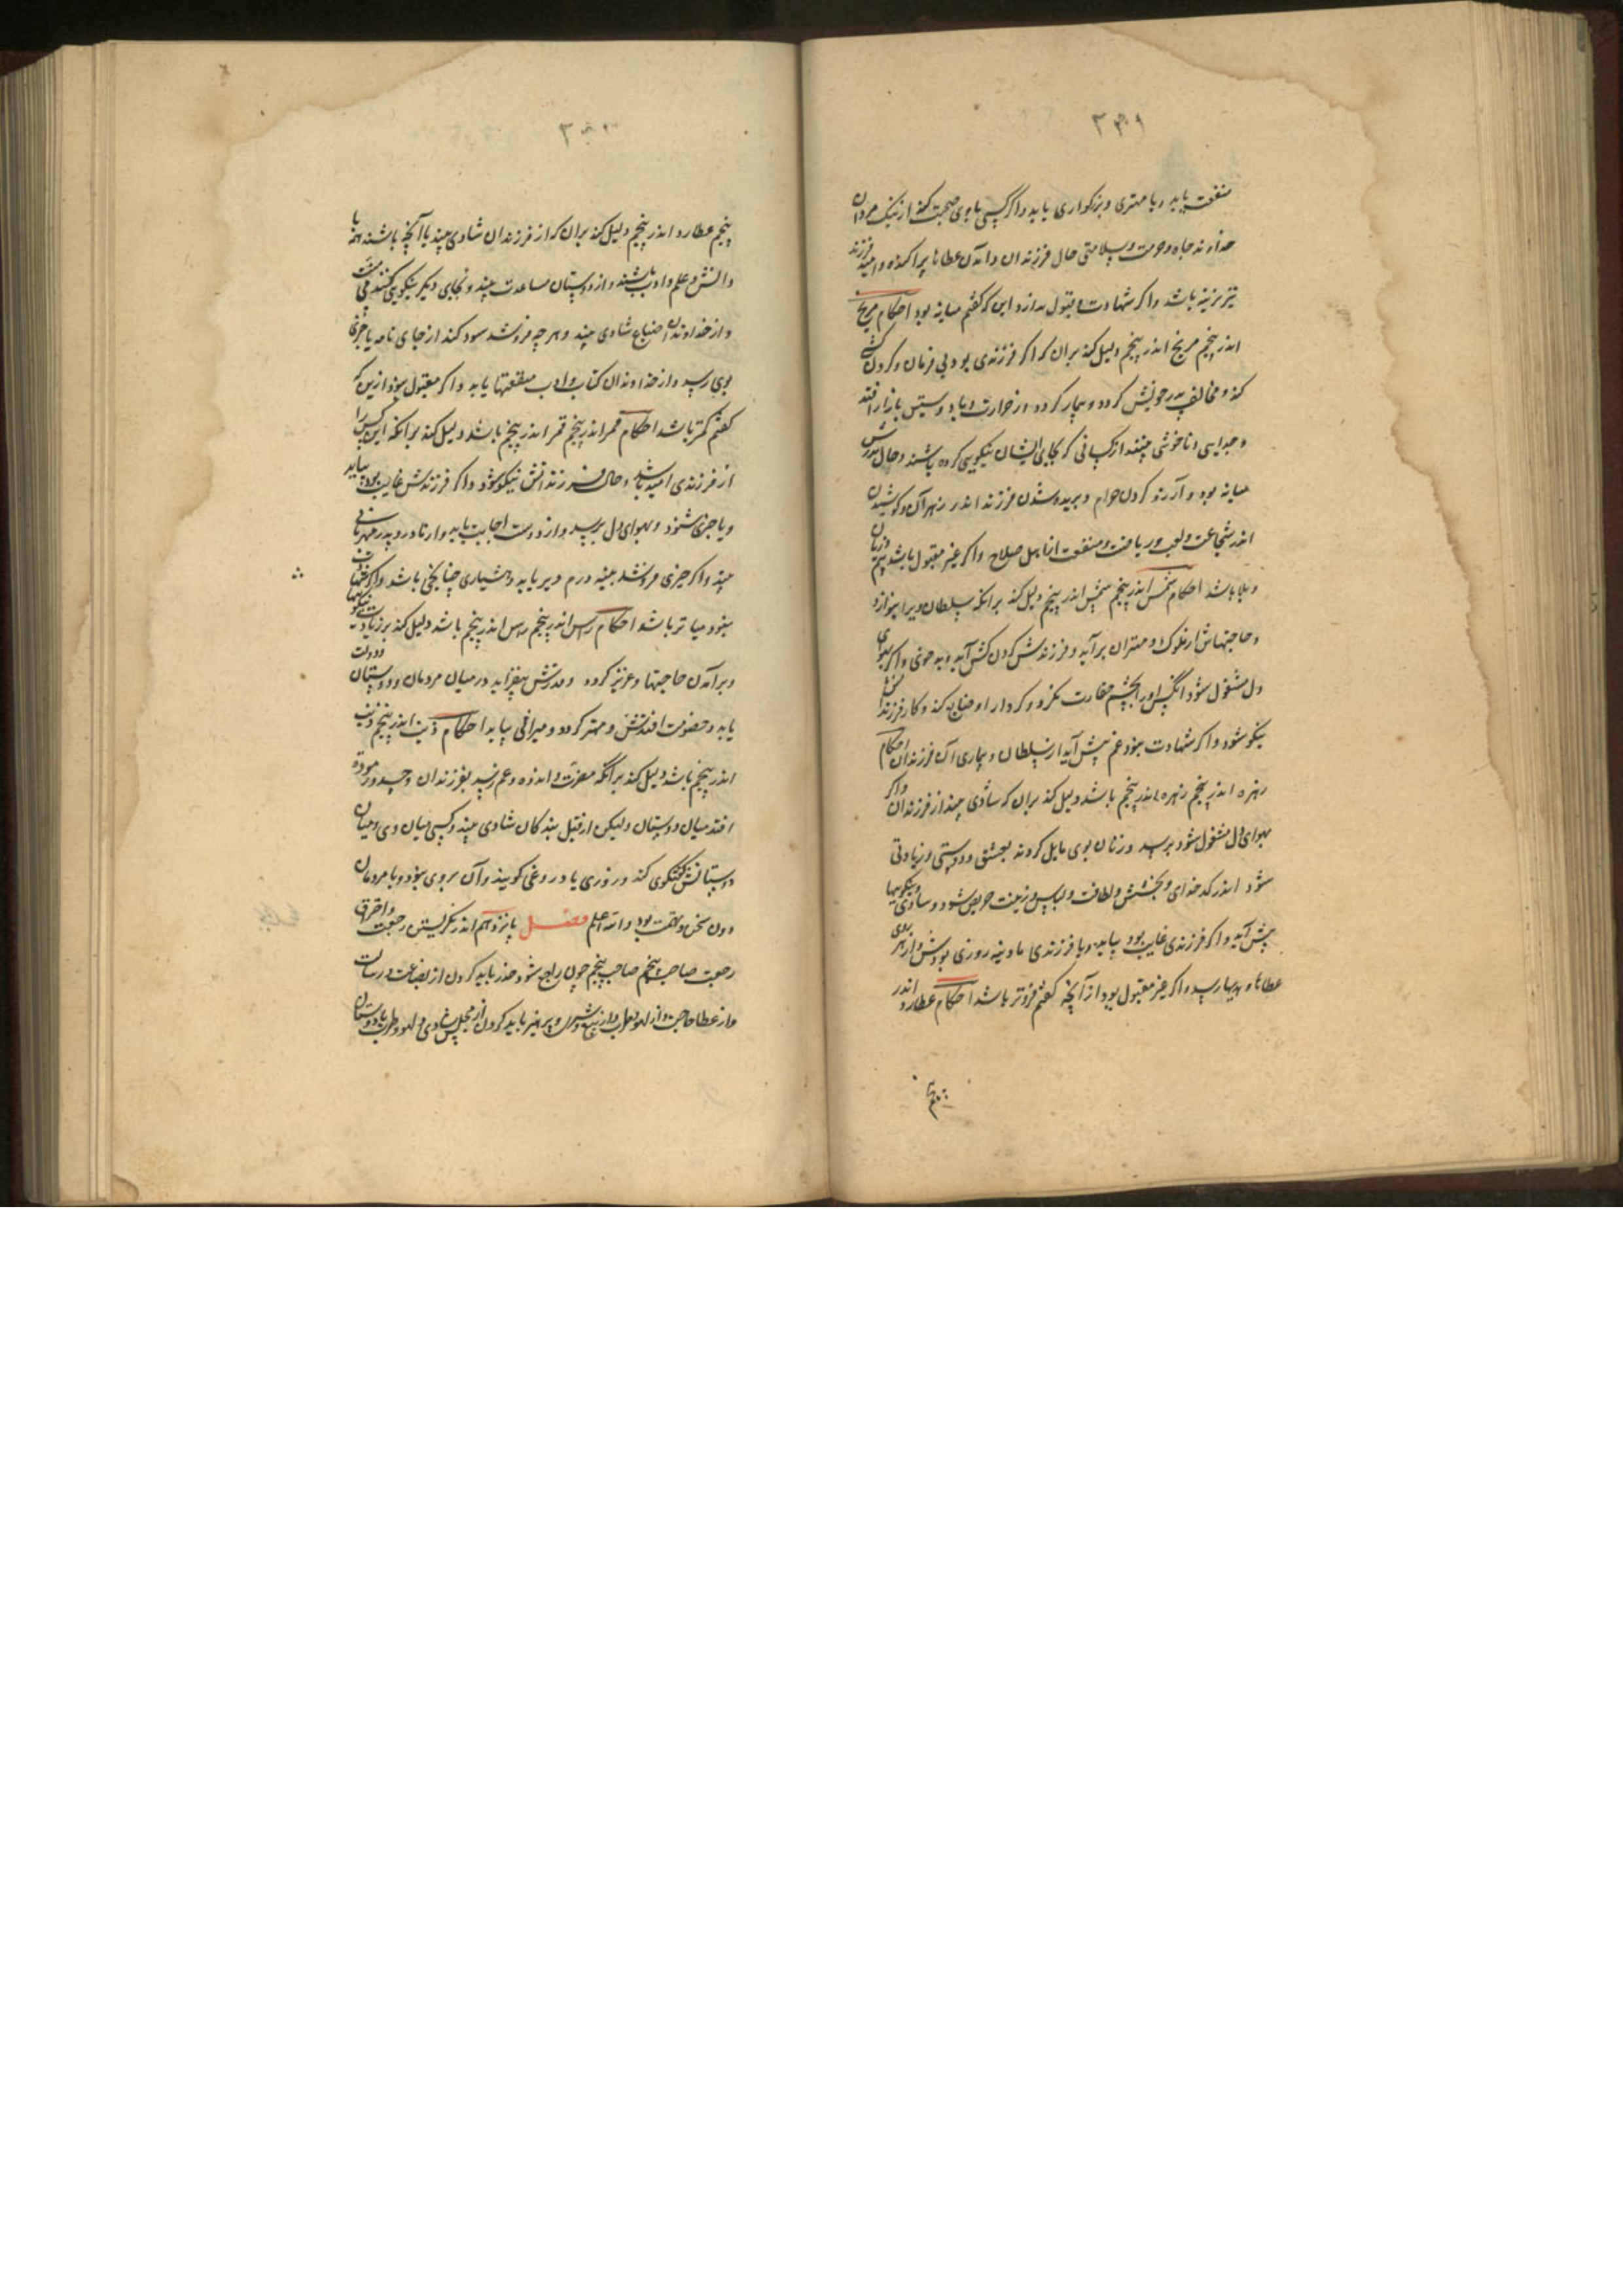 منفعت یابد و با مهتری و بزرکواری یابد واکر کسی با وی صحبت کند از نیک مردان
خداوند جاه و حرمت و سلامتی حال فرزندان و آمدن عطاها پراکنده و امید فرزند
نیز باشد واکر شهادت و قبول ندارد این که کفتم میانه بود احکام مریخ
اندر پنجم مریخ اندر پنجم دلیل کند بران که اکر فرزندی بود بی فرمان و کردن کشی
کند و مخالف پدر خویش کردد و بیمار کردد از حرارت و باد
و جدایی و ناخوشی بیند از کسانی که بجای ایشان نیکویی کرده باشند و حال پدرش
میانه بود و آرزو کردن حرام و بریده شدن فرزند اندر و کوشیدن
اندر شجاعت و لعب و ریاضت و منفعت از اهل صلاح واکر غیر مقبول باشد بیم
و بلا باشد احکام شمس اندر پنجم شمس اندر پنجم دلیل کند برانکه سلطان ویرا بنوازد
و حاجتهاش از ملوک و مهتران برآید و فرزندش کردن کش آید و بدخوی واکر بهوای
دل مشغول شود انکس او را بچشم حقارت نکرد و کردار او ضایع کند و کار فرزندانش
نیکو شود واکر شهادت نبود غم پیش آید از سلطان و بیماری آن فرزندان احکام
زهره اندر پنجم زهره اندر پنجم باشد دلیل کند بران که شادی بیند از فرزندان واکر
بهوای دل مشغول شود برسد و زنان بوی مایل کردند بعشق و دوستی و زیادتی
شود اندر کدخدای و بخشش و لطافت و لباس و زینت حریص شود و شادی و نیکویها
پیش آید واکر فرزندی غایب بود بیاید و یا فرزندی مادینه روزی بودش و از هر روی
عطاها و هدیها رسد واکر غیر مقبول بود از آنچه کفتم فروتر باشد احکام عطارد اندر
پنجم
پنجم عطارد اندر پنجم دلیل کند بران که از فرزندان شادی بیند با آنچه باشند همه با
دانش و علم و ادب باشند و از دوستان مساعدت بیند و بجای دیکر نیکویی کنند بی منت
و از خداوندان ضیاع شادی بیند و هر چه فروشد سود کند از جای نامه یا خبری
بوی رسد و از خداوندان کتاب و ادب منفعتها یابد واکر مقبول نبود ازین که
کفتم کمتر باشد احکام قمر اندر پنجم قمر اندر پنجم باشد دلیل کند برانکه این کس را
از فرزندی امید باشد و حال فرزندانش نیکو شود واکر فرزندش غایب بود بیاید
و یا خبری شنود و بهوای دل برسد و از دوست اجابت یابد و از مادر و پدر مهربانی
بیند واکر چیزی فروشد بیند درم دیر یابد و هشیاری باشد
نبود میانه‌تر باشد احکام راس اندر پنجم راس اندر پنجم باشد دلیل کند بر زیادتی نیکویها
و برآمدن حاجتها و عزیز کردد و قدرش بیفزاید در میان مردمان و دوستان و دولت
یابد و خصومت افتدش و مهتر کردد و میراثی بیابد احکام ذنب اندر پنجم ذنب
اندر پنجم باشد دلیل کند برانکه مضرت و اندوه و غم رسد بفرزندان و حسد
افتد میان دوستان ولیکن از قبل بندکان شادی بیند و کسی میان وی و میان
دوستانش کفتکوی کند و زوری یا دروغی کویند و آن بر وی نبود و با مردمان
دون سخن و تهمت بود والله اعلم فصل پانزدهم اندر نکریستن رجعت و احتراق
رجعت صاحب پنجم صاحب پنجم چون راجع شود حذر باید کردن از بضاعت و رسالت
و از عطا حاجت و از لهو و لعب و از بیع و شری و پرهیز باید کردن از مجلس شادی و لهو و طرب با دوستان